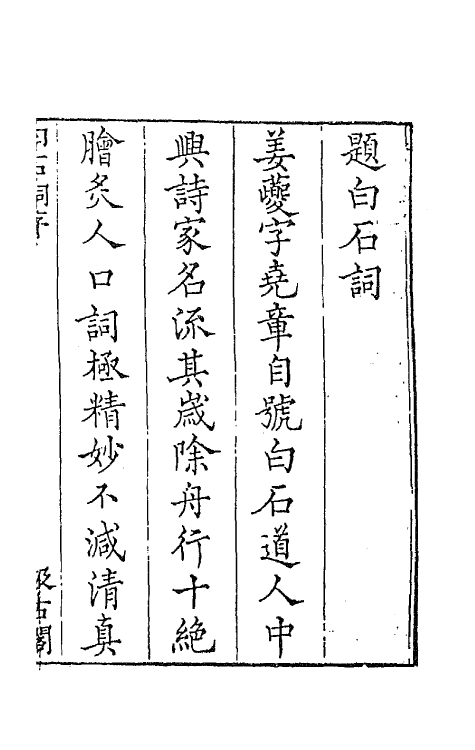 題白石詞
姜夔字堯章自號白石道人中
興詩家名流其歲除舟行十絕
膾炙人口詞極精妙不減清真
白石詞序
汲古閣